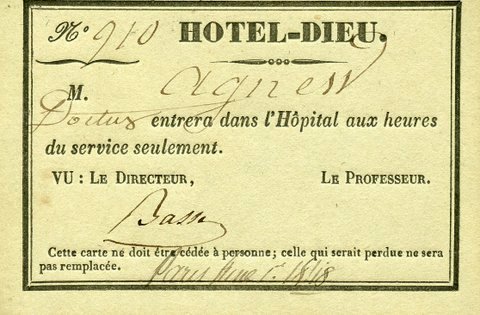 N° 910 HOTEL-DIEU.
M. Agnew
Docteur entrera dans l'Hôpital aux heures
du service seulement.
VU : LE DIRECTEUR, LE PROFESSEUR.
Basse
Cette carte ne doit être cédée à personne ; celle qui serait perdue ne sera
pas remplacée.
Paris June 1. 1848